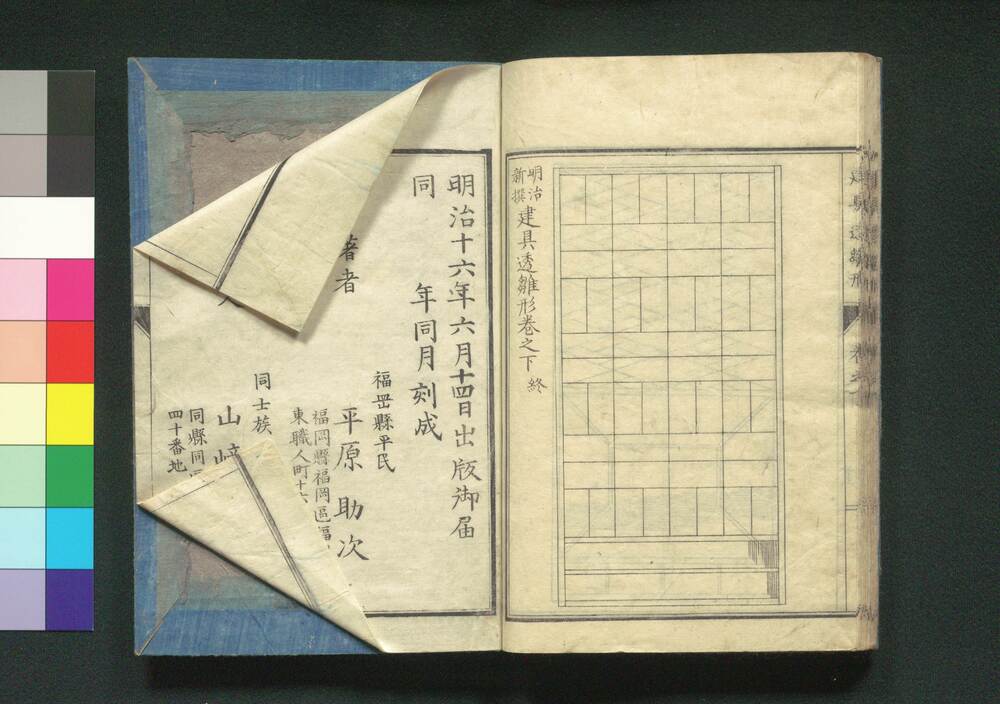 明治
新撰
建具透雛形卷之下 終
明治十六年六月十四日出版御届
同 年同月刻成
福岡縣平民
著者 平原助次
福岡縣福岡區福
東職人町十六
同士族
山崎
同縣同
四十番地